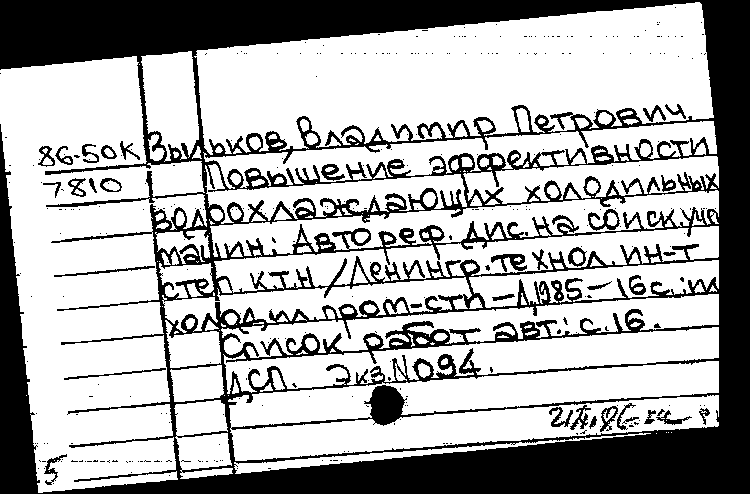 86-50К Зыльков, Владимир Петрович.
7810 Повышение эффективности
водоохлаждающих холодильных
машин: Автореф. дис. на соиск. уч
степ. к.т.н. /Ленингр. технол. ин-т
холодил. пром-сти – Л, 1985. – 16 с.: ил
Список работ авт.: с. 16.
ДСП. Экз. N 094.
5